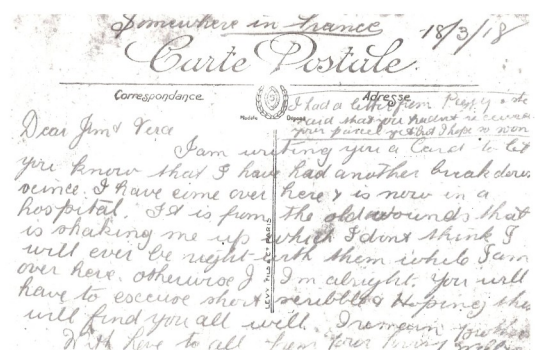 Somewhere in France
18/3/18
Carte Postale
Correspondance
Adresse
Modèle Déposé
I had a letter from Peggy & she
said that you havent received
your parcel yet but I hope so now
Dear Jim & Vera
I am writing you a Card to let
you know that I have had another breakdown
scince I have come over here & is now in a
hospital. It is from the old wounds that
is shaking me up which I dont think I
will ever be right with them while I am
over here. otherwise I I'm alright. You will
have to excuse short scribble & Hoping this
will find you all well. I remain
With love to all from Your loving
LEVY FILS & Cie PARIS